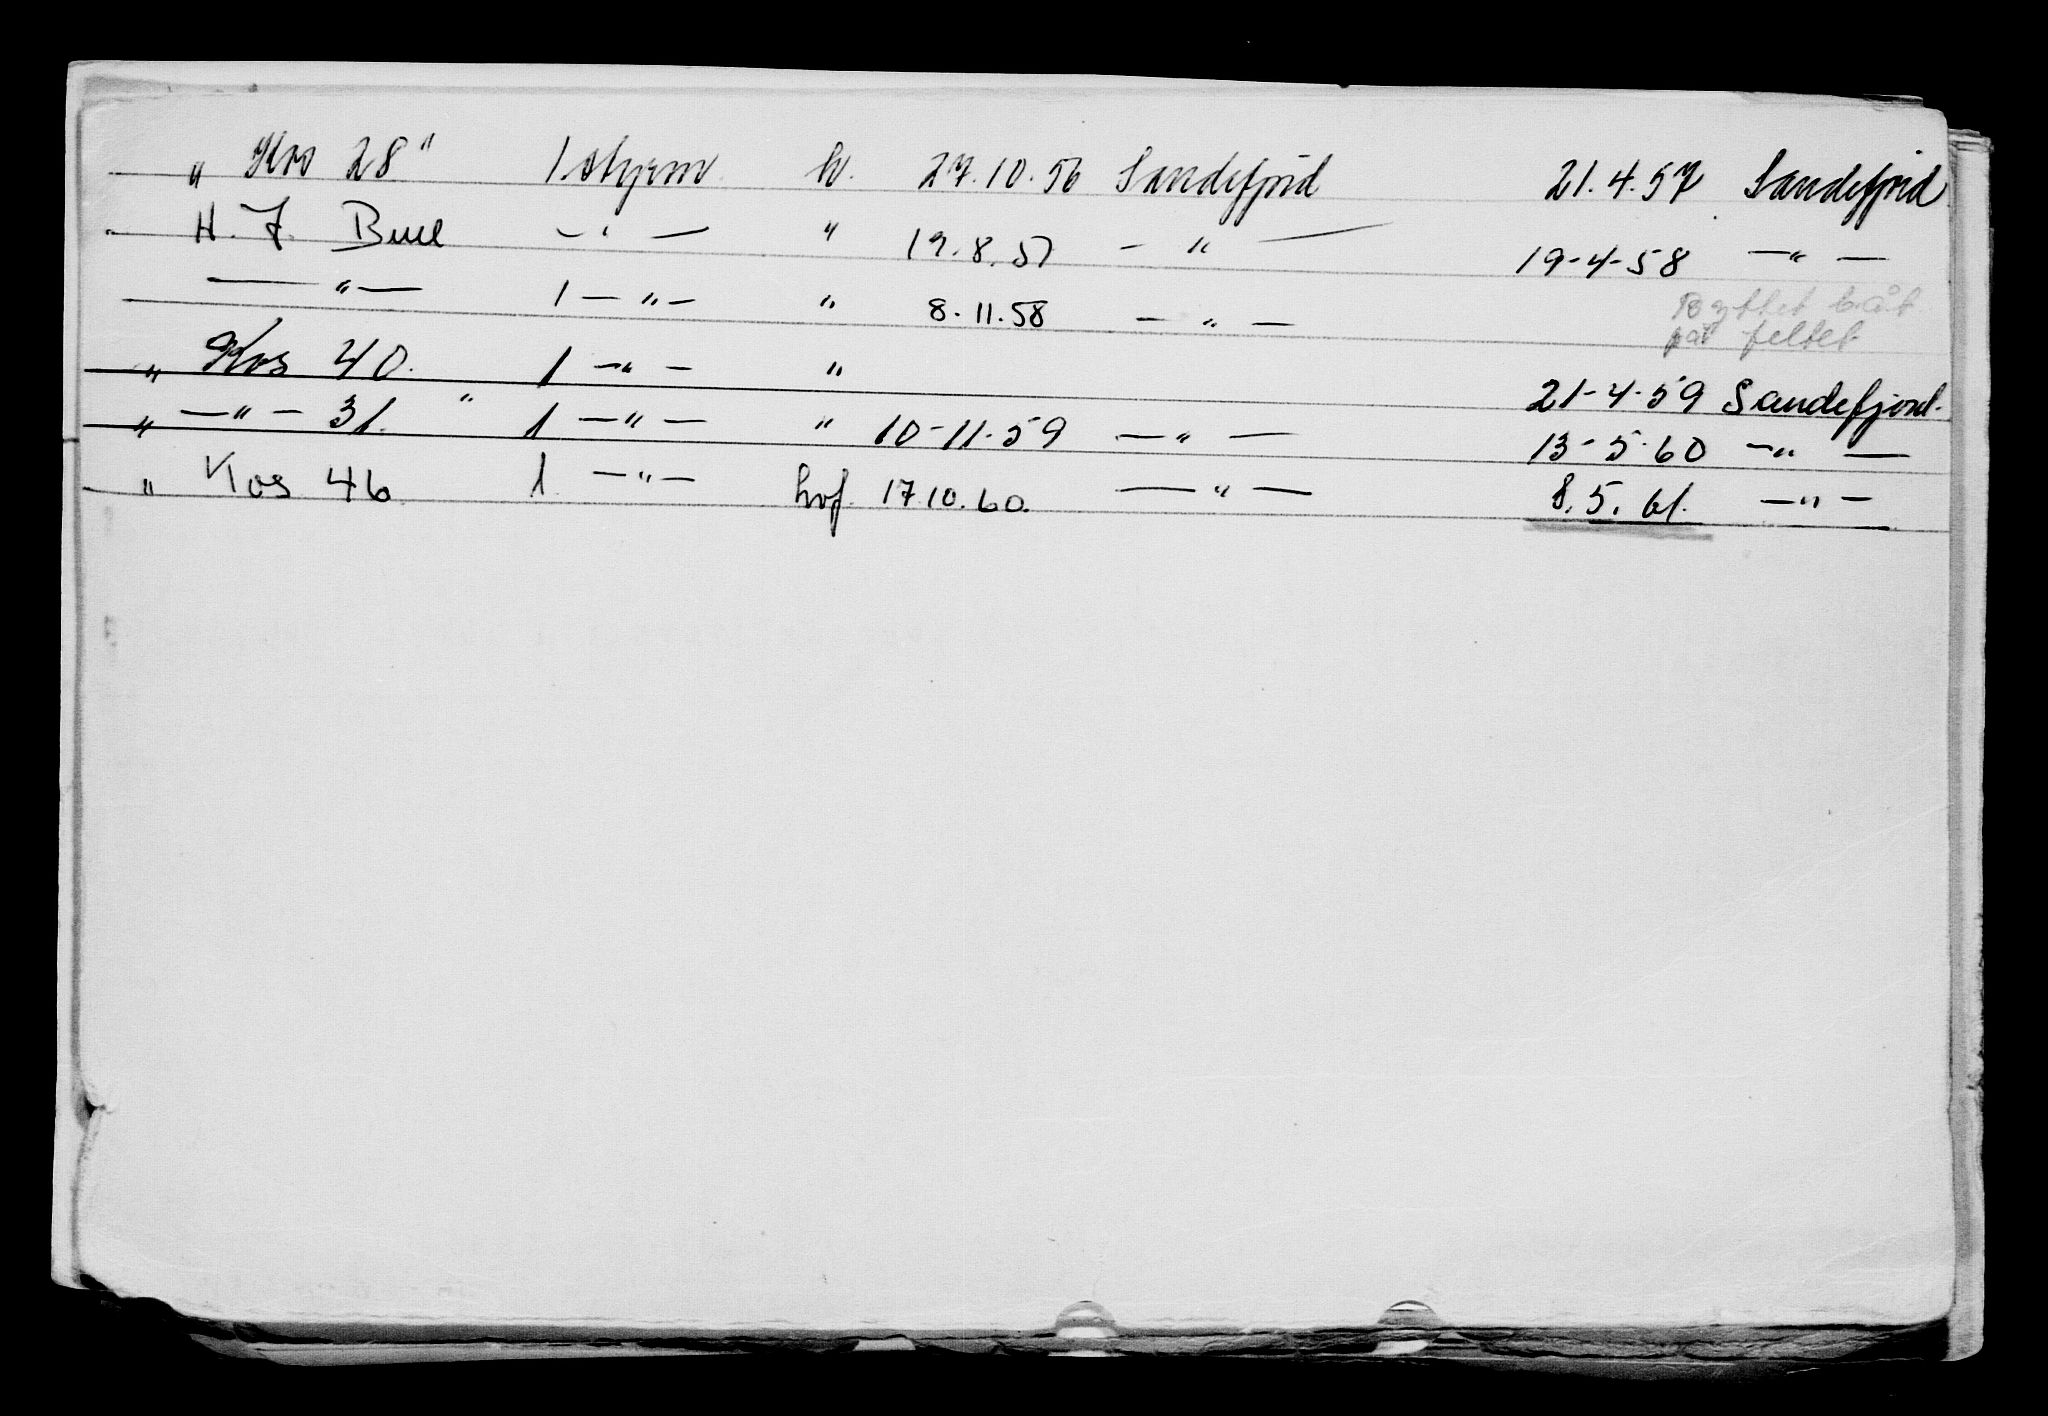 „ Kos 28" 1 styrm. h. 27.10.56 Sandefjord 21.4.57 Sandefjord
" H. J. Bull — " — " 19.8.57 — " — 19-4-58 — " —
— " — 1 — " — " 8.11.58 — " — Byttet båt
på feltet
„ Kos 40. 1 — " — " 21-4-59 Sandefjord.
„ — " — 31. " 1 — " — " 10-11-59 — " — 13-5-60 — " —
„ Kos 46 1 — " — hvf. 17.10.60. — " — 8.5.61. — " —